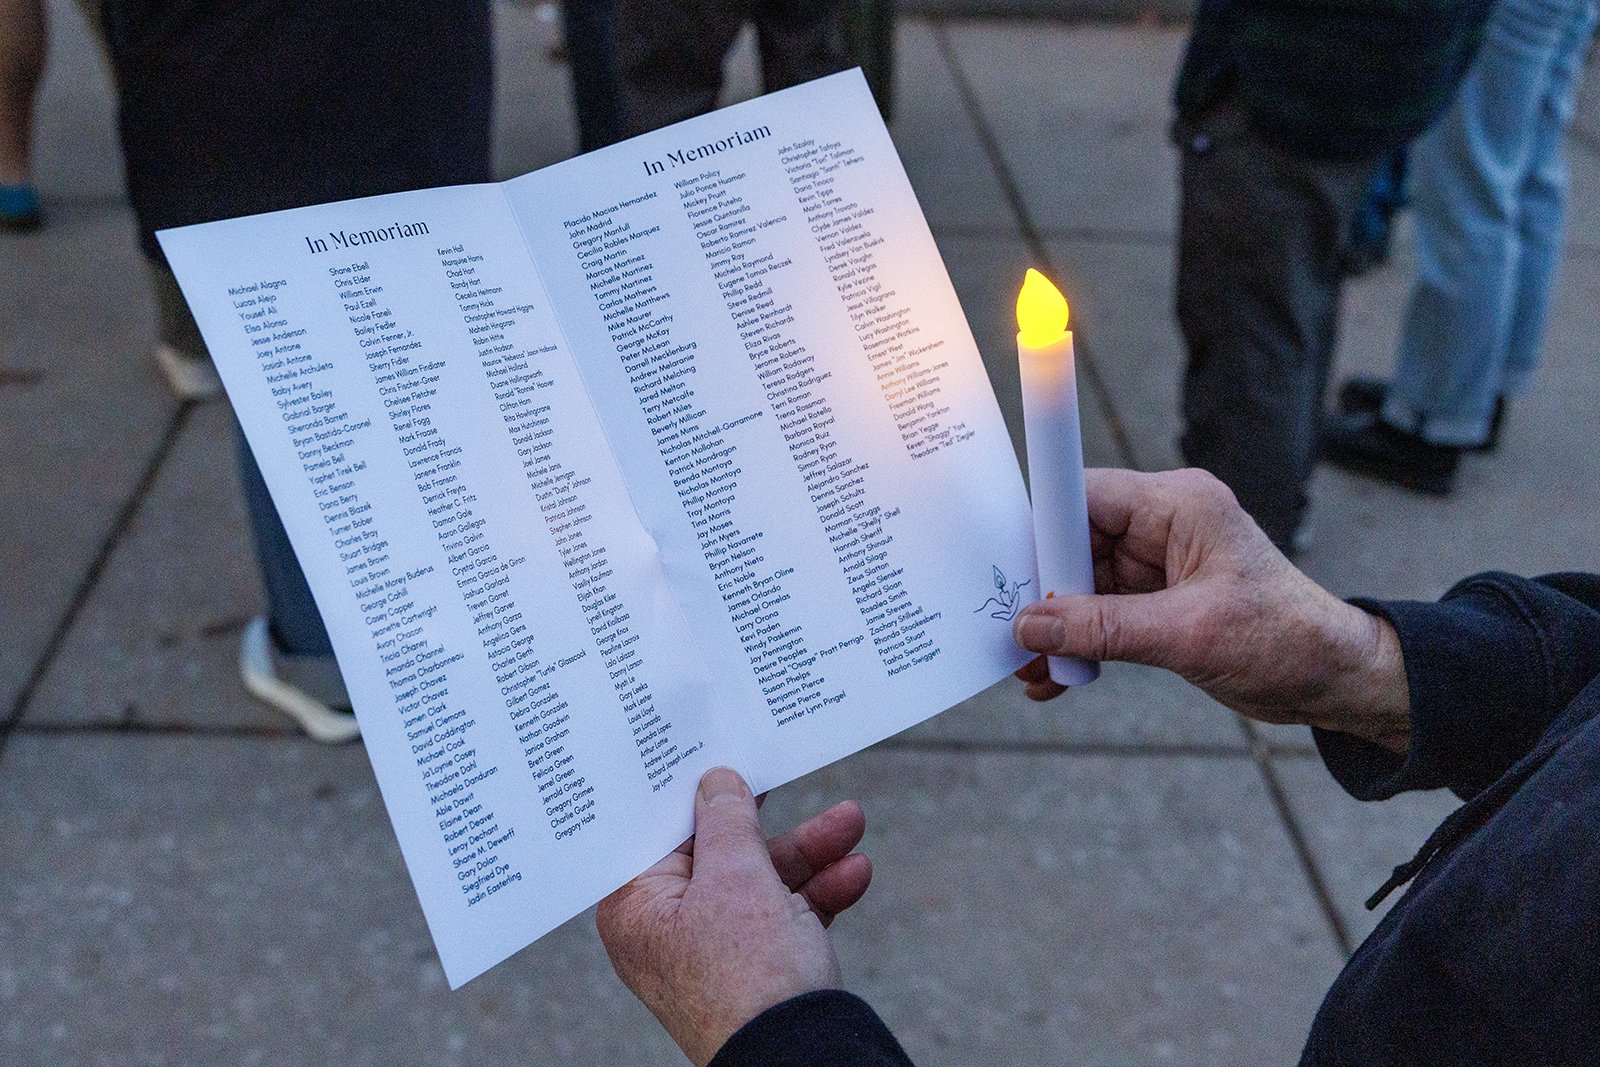 In Memoriam
Michael Alagna
Lucas Alejo
Yousef Ali
Elsa Alonso
Jesse Anderson
Joey Antone
Josiah Antone
Michelle Archuleta
Baby Avery
Sylvester Bailey
Gabrial Barger
Sheronda Barrett
Bryan Bastida-Coronel
Danny Beckman
Pamela Bell
Yaphet Tirek Bell
Eric Benson
Dana Berry
Dennis Blazek
Turner Bober
Charles Bray
Stuart Bridges
James Brown
Louis Brown
Michelle Morey Buderus
George Cahill
Casey Capper
Jeanette Cartwright
Avory Chacon
Tricia Chaney
Amanda Channel
Thomas Charbonneau
Joseph Chavez
Victor Chavez
Jamen Clark
Samuel Clemons
David Coddington
Michael Cook
Ja'Loynie Cosey
Theodore Dahl
Michaela Danduran
Able Dawit
Elaine Dean
Robert Deaver
Leroy Dechant
Shane M. Dewerff
Gary Dolan
Siegfried Dye
Jadin Easterling
Shane Ebell
Chris Elder
William Erwin
Paul Ezell
Nicole Faneli
Bailey Fedler
Calvin Fenner, Jr.
Joseph Fernandez
Sherry Fidler
James William Findlater
Chris Fischer-Greer
Chelsee Fletcher
Shirley Flores
Renel Fogg
Mark Fraase
Donald Frady
Lawrence Francis
Janene Franklin
Bob Franson
Derrick Freyta
Heather C. Fritz
Damon Gale
Aaron Gallegos
Trivina Galvin
Albert Garcia
Crystal Garcia
Emma Garcia de Giron
Joshua Garland
Treven Garret
Jeffrey Garver
Anthony Garza
Angelica Gens
Astacia George
Charles Gerth
Robert Gibson
Christopher "Turtle" Glasscock
Gilbert Gomez
Debra Gonzales
Kenneth Gonzales
Nathan Goodwin
Janice Graham
Brett Green
Felicia Green
Jerrel Green
Jerrold Griego
Gregory Grimes
Charlie Gurule
Gregory Hale
Kevin Hall
Marquise Harris
Chad Hart
Randy Hart
Cecelia Heitmann
Tommy Hicks
Christopher Howard Higgins
Mahesh Hingorani
Robin Hittie
Justin Hodson
Maurice "Rebecca" Jason Holbrook
Michael Holland
Duane Hollingsworth
Ronald "Ronnie" Hoover
Clifton Horn
Rita Howlingcrane
Max Hutchinson
Donald Jackson
Gary Jackson
Joel James
Michele Janis
Michelle Jernigan
Dustin "Dusty" Johnson
Kristal Johnson
Patricia Johnson
Stephen Johnson
John Jones
Tyler Jones
Wellington Jones
Anthony Jordan
Vassiliy Kaufman
Elijah Khan
Douglas Kiker
Lynell Kingston
David Kiolbasa
George Knox
Pearline Lacroix
Lalo Lalazar
Danny Larson
Mysti Le
Gary Leeka
Mark Lester
Louis Lloyd
Jon Lonardo
Deandra Lopez
Arthur Lottie
Andrew Lucero
Richard Joseph Lucero, Jr.
Jay Lynch
In Memoriam
Placido Macias Hernandez
John Madrid
Gregory Manfull
Cecilio Robles Marquez
Craig Martin
Marcos Martinez
Michelle Martinez
Tommy Martinez
Carlos Mathews
Michelle Matthews
Mike Maurer
Patrick McCarthy
George McKay
Peter McLean
Darrell Mecklenburg
Andrew Melaranie
Richard Melching
Jared Melton
Terry Metcalfe
Robert Miles
Beverly Millican
James Mims
Nicholas Mitchell-Garramone
Kenton Mollohan
Patrick Mondragon
Brenda Montoya
Nicholas Montoya
Phillip Montoya
Troy Montoya
Tina Morris
Jay Moses
John Myers
Phillip Navarrete
Bryan Nelson
Anthony Nieto
Eric Noble
Kenneth Bryan Oline
James Orlando
Michael Ornelas
Larry Orona
Kevi Paden
Windy Paskemin
Jay Pennington
Desire Peoples
Michael "Osage" Pratt Perrigo
Susan Phelps
Benjamin Pierce
Denise Pierce
Jennifer Lynn Pingel
William Policy
Julio Ponce Huaman
Mickey Pruitt
Florence Puteho
Jessie Quintanilla
Oscar Ramirez
Roberto Ramirez Valencia
Maricio Ramon
Jimmy Ray
Michela Raymond
Eugene Tomas Reczek
Phillip Redd
Steve Redmill
Denise Reed
Ashlee Reinhardt
Steven Richards
Eliza Rivas
Bryce Roberts
Jerome Roberts
William Rodaway
Teresa Rodgers
Christina Rodriguez
Terri Roman
Trena Rossman
Michael Rotella
Barbara Royval
Monica Ruiz
Rodney Ryan
Simon Ryan
Jeffrey Salazar
Alejandro Sanchez
Dennis Sanchez
Joseph Schultz
Donald Scott
Morman Scruggs
Michelle "Shelly" Shell
Hannah Sheriff
Anthony Shinault
Arnold Silago
Zeus Slatton
Angela Slensker
Richard Sloan
Rosalea Smith
Jamie Stevens
Zachary Stillwell
Rhonda Stockenberry
Patricia Stuart
Tasha Swartout
Marlon Swiggett
John Szalay
Christopher Tafoya
Victoria "Tori" Taliman
Santiago "Santi" Tehero
Dario Tinoco
Kevin Tipps
Marlo Torres
Anthony Trovato
Clyde James Valdez
Vernon Valdez
Fred Valenzuela
Lyndsey Van Buskirk
Derek Vaughn
Ronald Vegas
Kylie Vezine
Patricia Vigil
Jesus Villagrana
Tilyn Walker
Calvin Washington
Lucy Washington
Rosemarie Watkins
Ernest West
James "Jim" Wickersheim
Annie Williams
Anthony Williams-Jones
Darryl Lee Williams
Freeman Williams
Donald Wong
Benjamin Yankton
Brian Yegge
Keven "Shaggy" York
Theodore "Ted" Ziegler